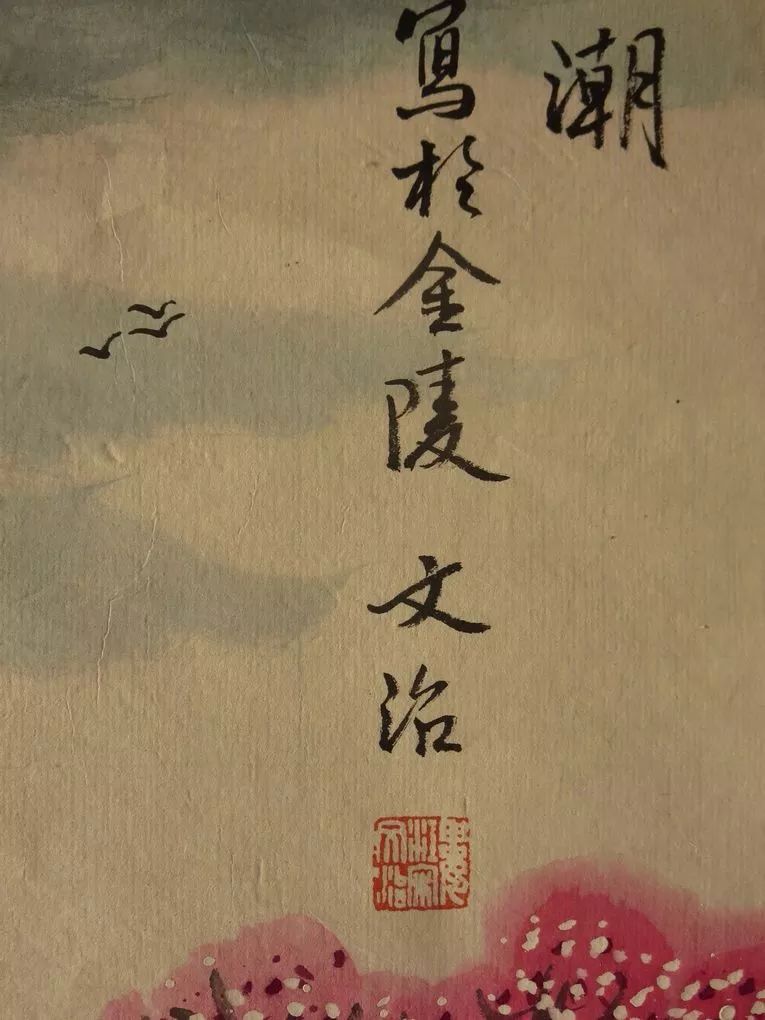 潮
寫於金陵 文治